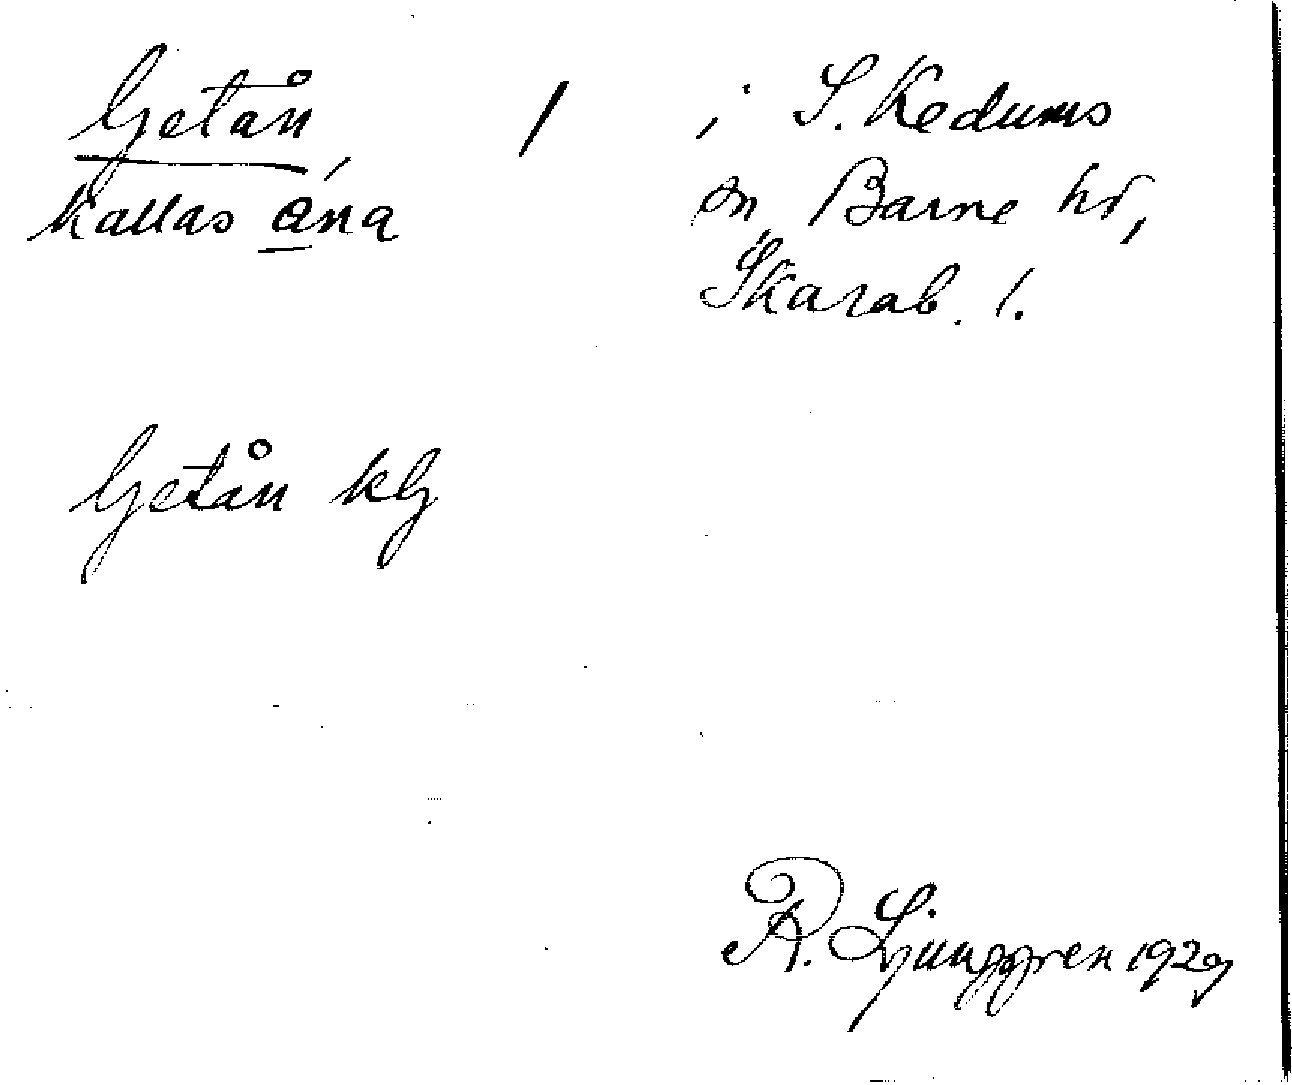 Getån / i S. Kedums
kallas ána sn, Barne hd,
Skarab. l.
Getån kb
R. Ljunggren 1929